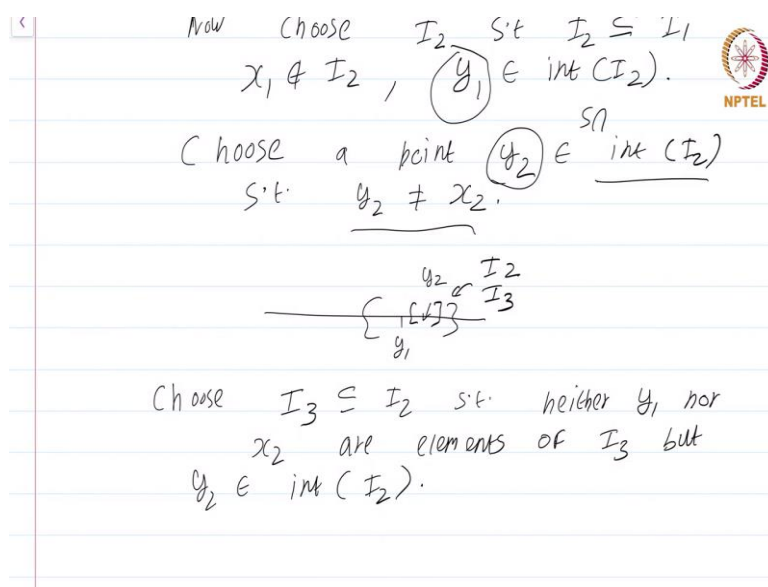 Now Choose I₂ s.t I₂ ⊆ I₁
x₁ ∉ I₂ , y₁ ∈ int (I₂).
NPTEL
S∩
Choose a point y₂ ∈ int (I₂)
s.t. y₂ ≠ x₂.
y₂ I₂
I₃
{ [ ] }
y₁
Choose I₃ ⊆ I₂ s.t. neither y₁ nor
x₂ are elements of I₃ but
y₂ ∈ int (I₂).